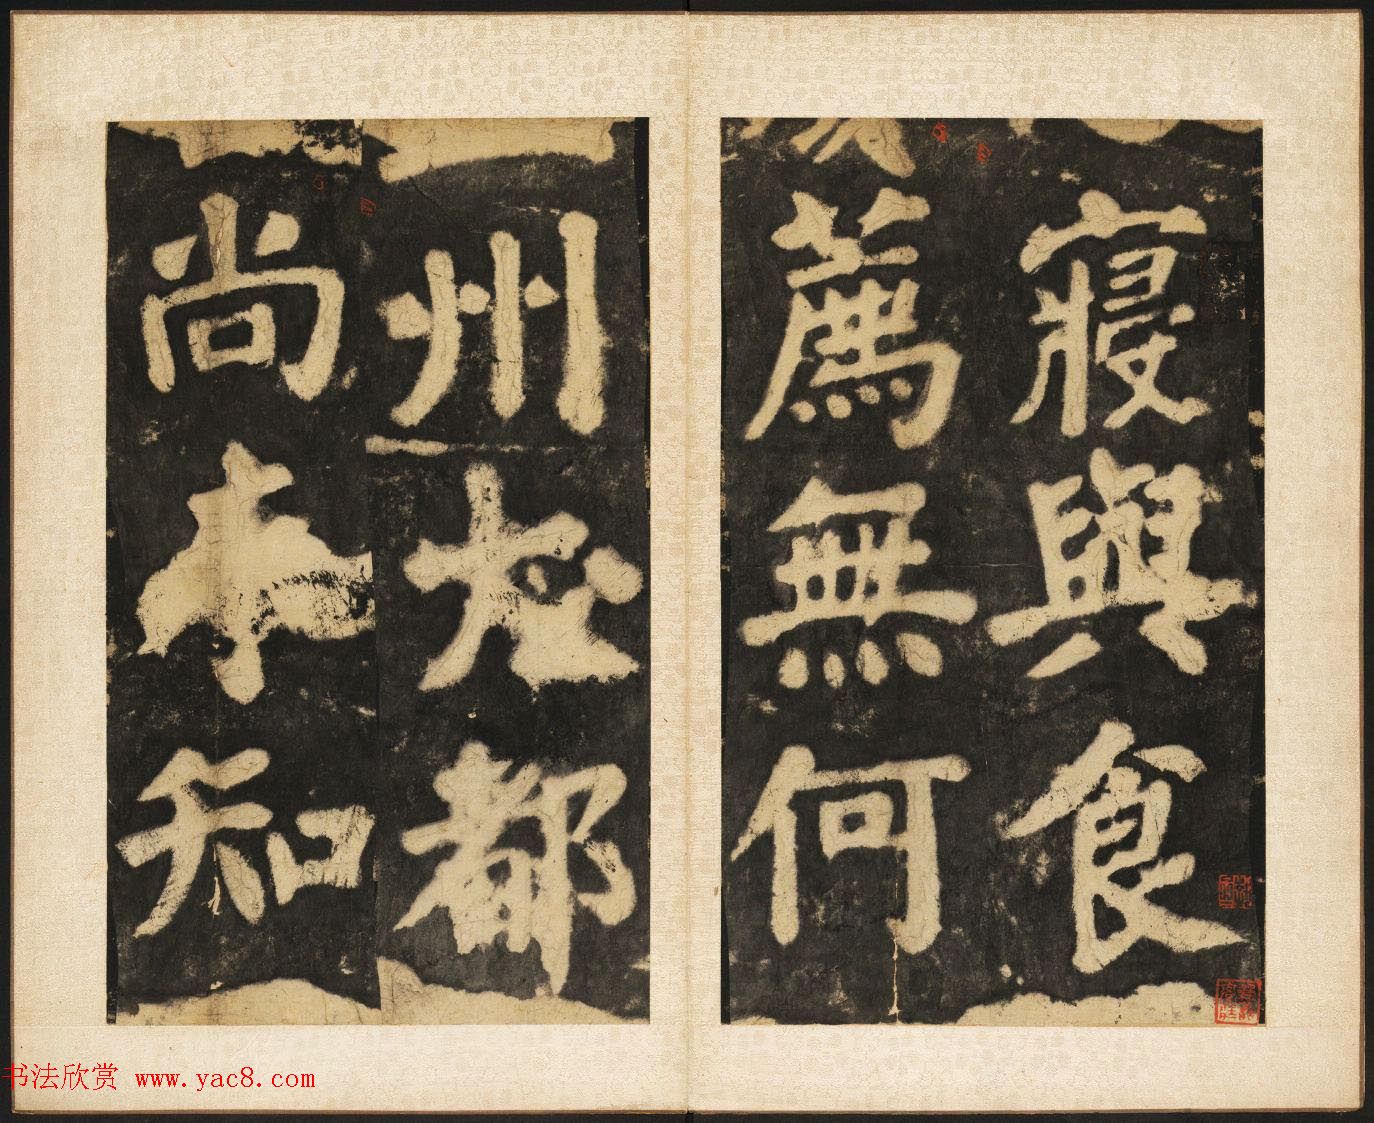 寢與食
薦無何
州犬都
尚未知
书法欣赏 www.yac8.com